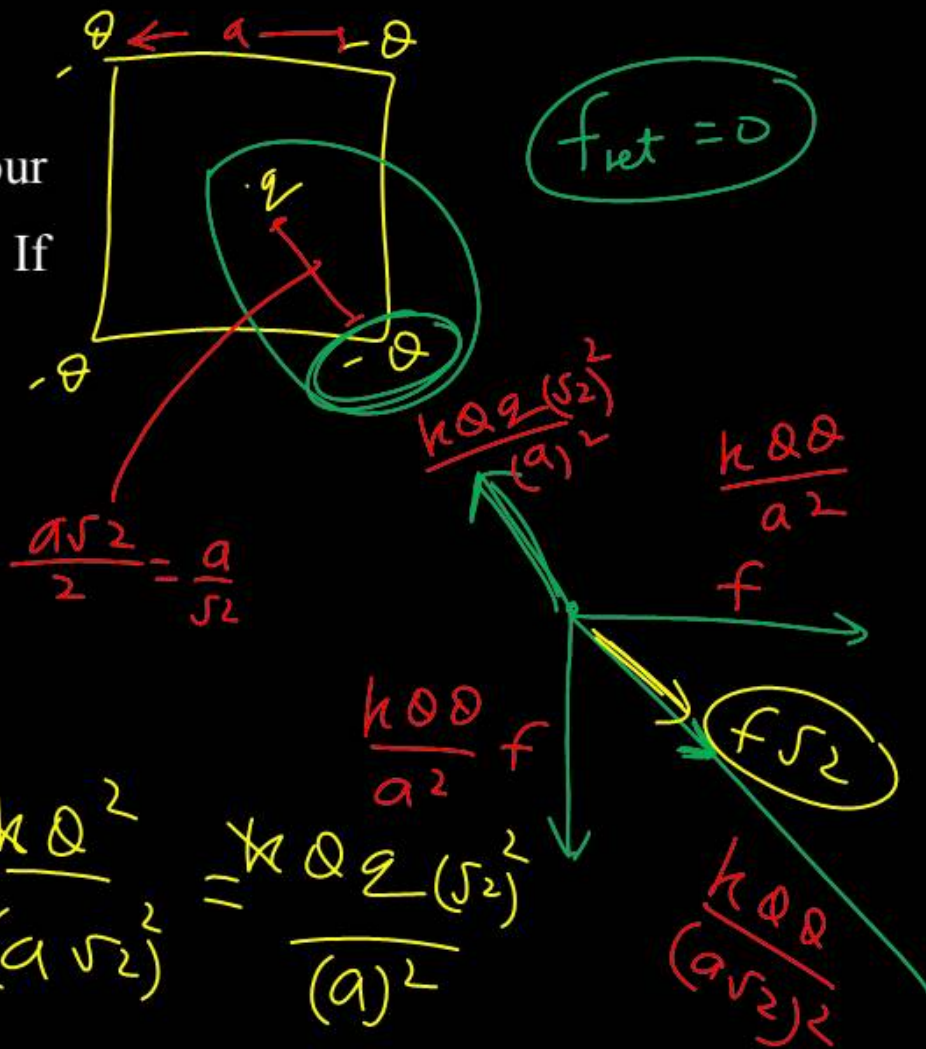 Q ← a → - Q
-
our
If
q
f_net = 0
- Q
- Q
a√2/2 = a/√2
kQq(√2)²/(a)²
kQQ/a²
f
kQQ/a² f
f√2
kQ²/(a√2)² = kQq(√2)²/(a)²
kQQ/(a√2)²